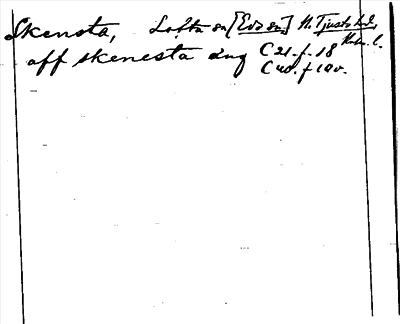 Skensta, Lofta sn [Eds sn] N. Tjusts hd,
Kalm. l.
aff skenesta dng C 21 f. 18
C 40. f 10 v.